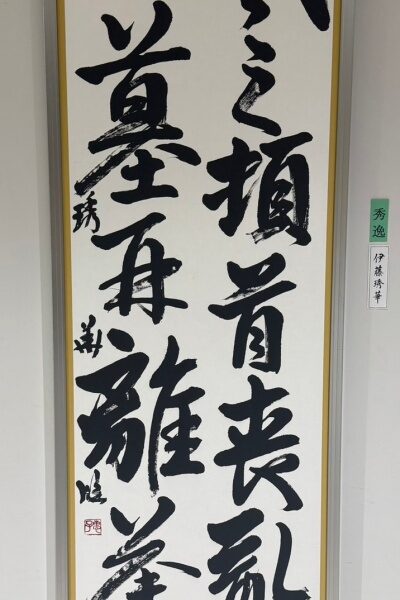 之頓首喪亂
墓再離荼
琇華臨
秀逸
伊藤琇華